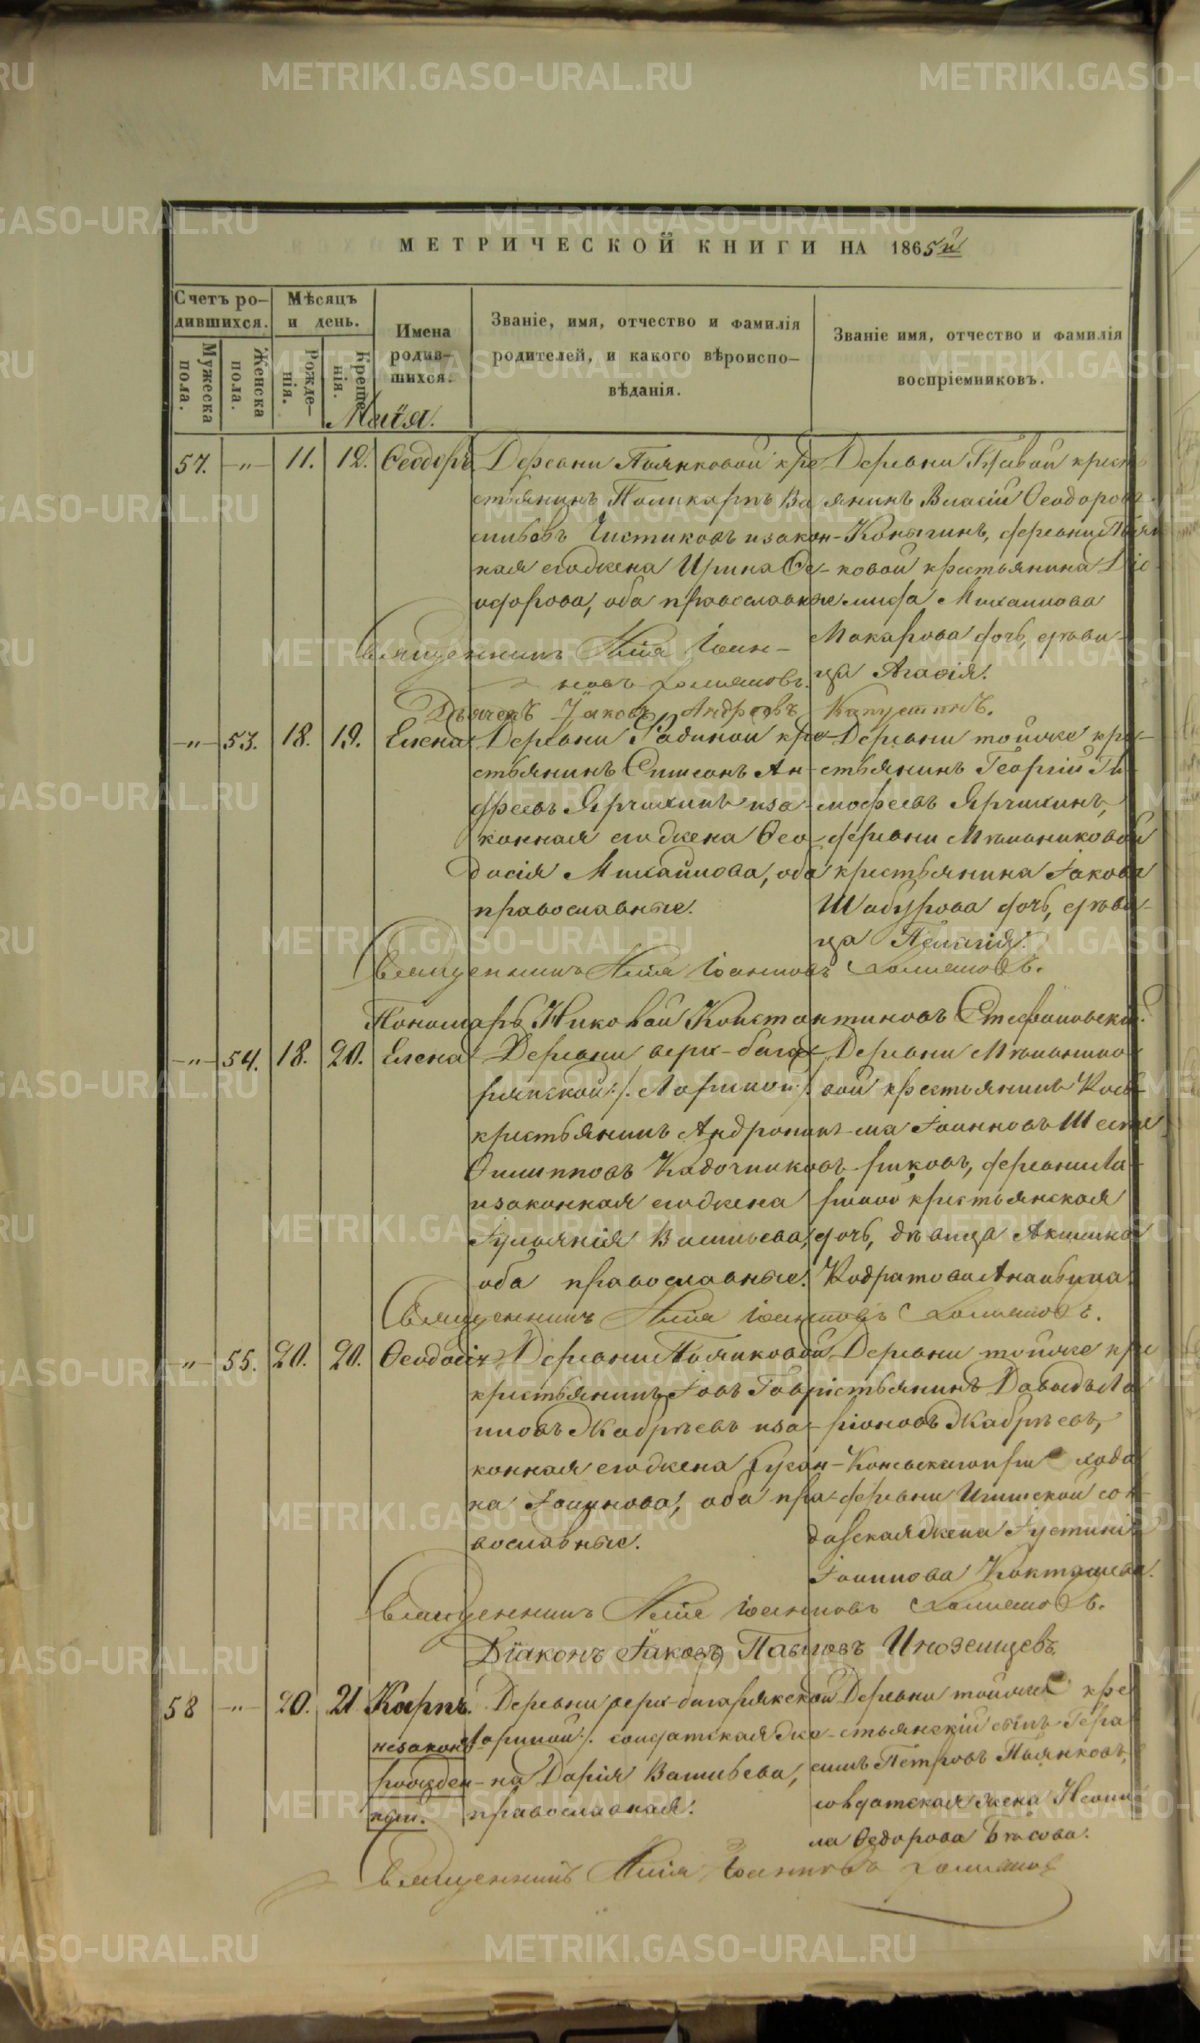 МЕТРИЧЕСКОЙ КНИГИ НА 1865й
Счетъ ро-
дившихся.
Мужеска
пола.
Женска
пола.
Мѣсяцъ
и день.
Рожде-
нія.
Креще-
нія.
Имена
родив-
шихся.
Званіе, имя, отчество и фамилія
родителей, и какого вѣроиспо-
вѣданія.
Званіе имя, отчество и фамилія
воспріемниковъ.
Маія.
57. -"- 11. 12. Ѳеодоръ
Деревни Пьянковой кре
стьянинъ Поликарпъ Ва
сильевъ Чистяковъ и закон-
ная его жена Ирина Ѳе-
одорова, оба православные
Деревни кресть
янинъ Власій Ѳеодоровъ
Коныгинъ, деревни Пьян
ковой крестьянина Дiо
мида Михайлова
Макарова дочь, дѣви-
ца Агафія.
Священникъ Илія Іоан-
новъ Холмановъ.
Дьячекъ Іаковъ Андреевъ Капустинъ.
-"- 53. 18. 19. Елена
Деревни кре-
стьянинъ Симеонъ Ан-
дреевъ Ярушинъ и за-
конная его жена Ѳео-
досія Михайлова, оба
православные.
Деревни тойже кре-
стьянинъ Георгій Ти-
мофеевъ Ярушинъ,
деревни Мельниковой
крестьянина Іакова
Шабурова дочь, дѣви-
ца Пелагія.
Священникъ Илія Іоанновъ Холмановъ.
Пономарь Николай Константиновъ Стефановскій.
-"- 54. 18. 20. Елена
Деревни верх-Бага-
рякской /: Лариной :/
крестьянинъ Андроникъ
Филипповъ Кадочниковъ
и законная его жена
Іуліанія Васильева,
оба православные.
Деревни Мельнико-
вой крестьянинъ Козь-
ма Іоанновъ Шесте
риковъ, деревни Ла-
риной крестьянская
дочь, дѣвица Акилина
Кодратова Ананьина.
Священникъ Илія Іоанновъ Холмановъ.
-"- 55. 20. 20. Ѳеодосія
Деревни Пьянковой
крестьянинъ Іовъ Гавр
иловъ Жабреевъ и за-
конная его жена Сусан-
на Іоаннова, оба пра-
вославные.
Деревни тойже кре
стьянинъ Давыдъ Ла
ріоновъ Жабреевъ,
деревни сол-
датская жена Іустинія
Іоаннова
Священникъ Илія Іоанновъ Холмановъ.
Діаконъ Іаковъ Павловъ Иноземцевъ.
58 -"- 20. 21 Карпъ.
незаконно
рожден-
ный.
Деревни верх-багарякской
Лариной :/ солдатская же-
на Дарія Васильева,
православная.
Деревни тойже кре
стьянскій сынъ Гера
симъ Петровъ Пьянковъ,
солдатская жена Неони
ла Ѳедорова
Священникъ Илія Іоанновъ Холмановъ
METRIKI.GASO-URAL.RU